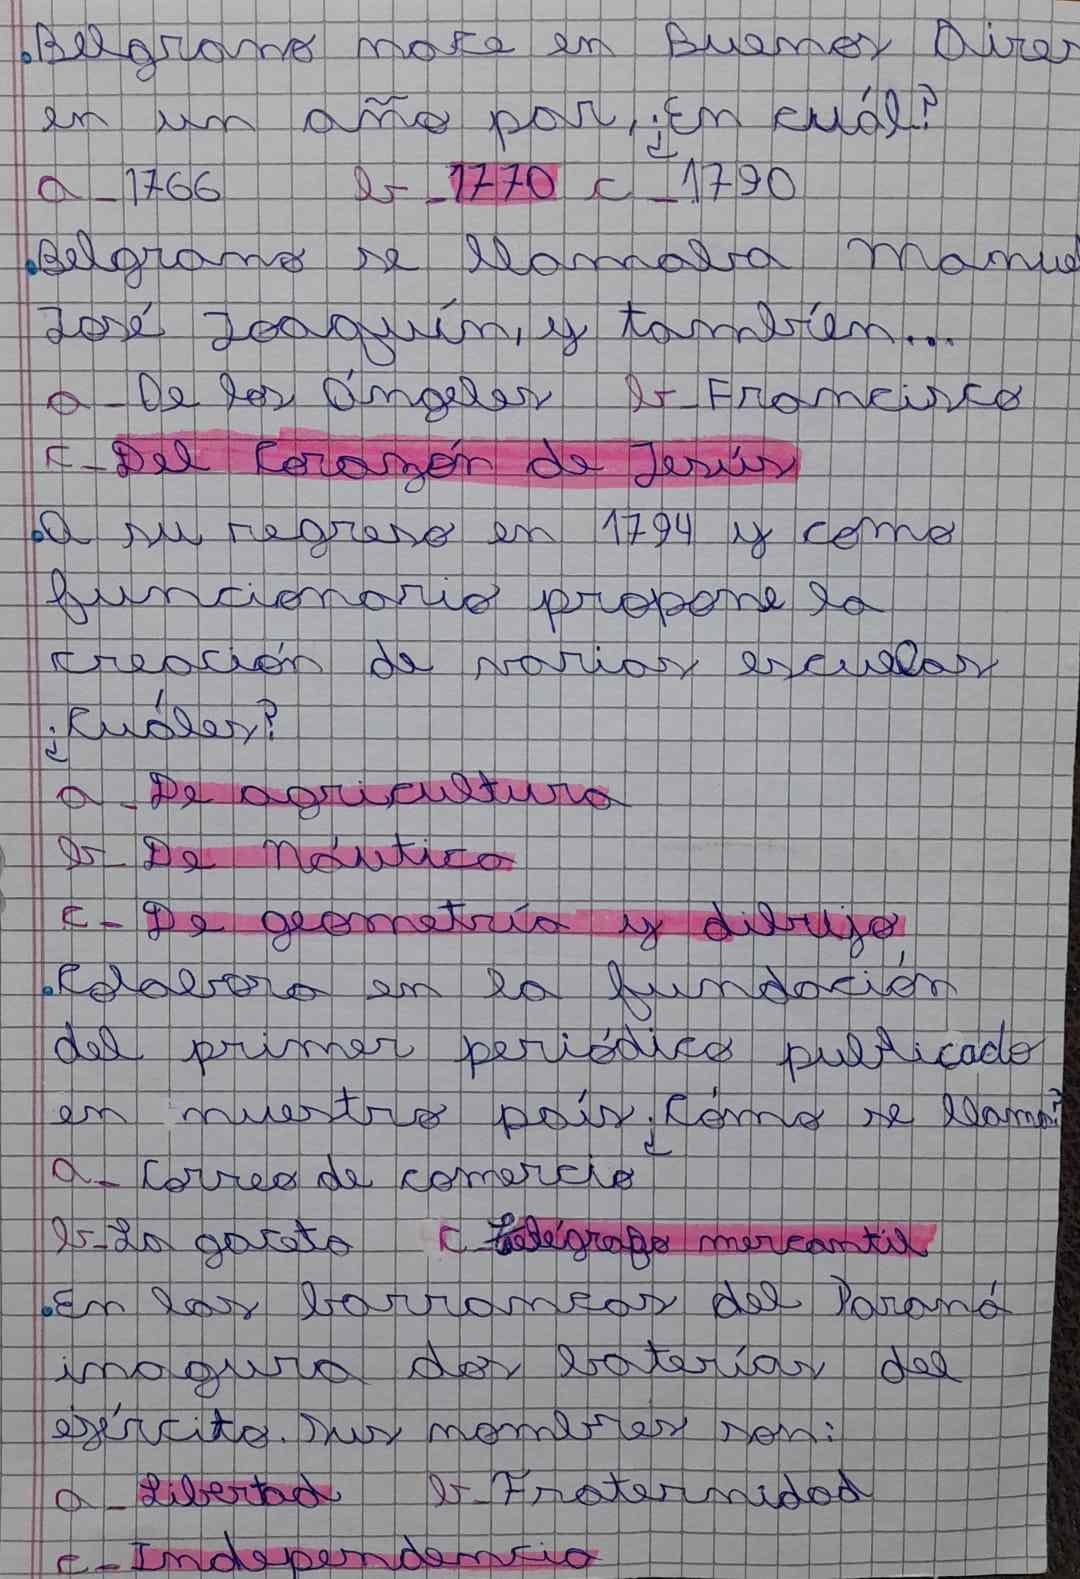 .Belgrano nace en Buenos Aires
en un año par, ¿En cuál?
a-1766 b-1770 c-1790
.Belgrano se llamaba Manuel
José Joaquín, y también...
a-De los Ángeles b-Francisco
c-Del Corazón de Jesús
.A su regreso en 1794 y como
funcionario propone la
creación de varias escuelas
¿Cuáles?
a-De agricultura
b-De Náutica
c-De geometría y dibujo
.Colabora en la fundación
del primer periódico publicado
en nuestro país ¿Cómo se llama?
a-Correo de comercio
b-La gaceta c-Telégrafo mercantil
.En las barrancas del Paraná
inagura dos baterías del
ejército. Sus nombres son:
a-Libertad b-Fraternidad
c-Independencia